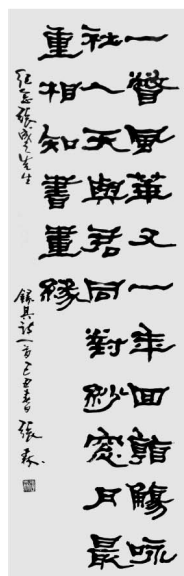 一瞥風華又一年回頭觴詠
社人天與君同對紗窗月最
重相知書畫緣
紀念張成之先生 錄其詩一首己丑春日 張森